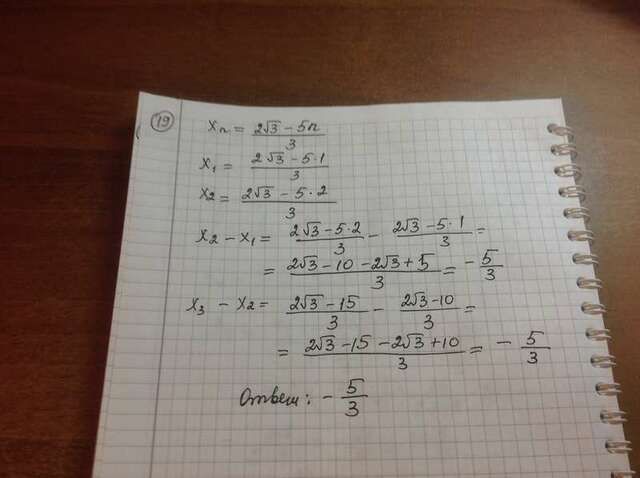 19
xₙ = (2√3 – 5n)/3
x₁ = (2√3 – 5·1)/3
x₂ = (2√3 – 5·2)/3
x₂ – x₁ = (2√3 – 5·2)/3 – (2√3 – 5·1)/3 =
= (2√3 – 10 – 2√3 + 5)/3 = – 5/3
x₃ – x₂ = (2√3 – 15)/3 – (2√3 – 10)/3 =
= (2√3 – 15 – 2√3 + 10)/3 = – 5/3
Ответ: – 5/3